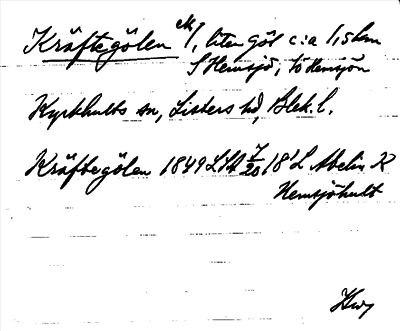 Kräftegölen ek/, liten göl c:a 1,5 km
S Hemsjö, to Hemsjön
Kyrkhults sn, Listers hd, Blek. l.
Kräftegölen 1849 LSA 7/20 18 L Abelin R
Hemsjöhult
Hwy